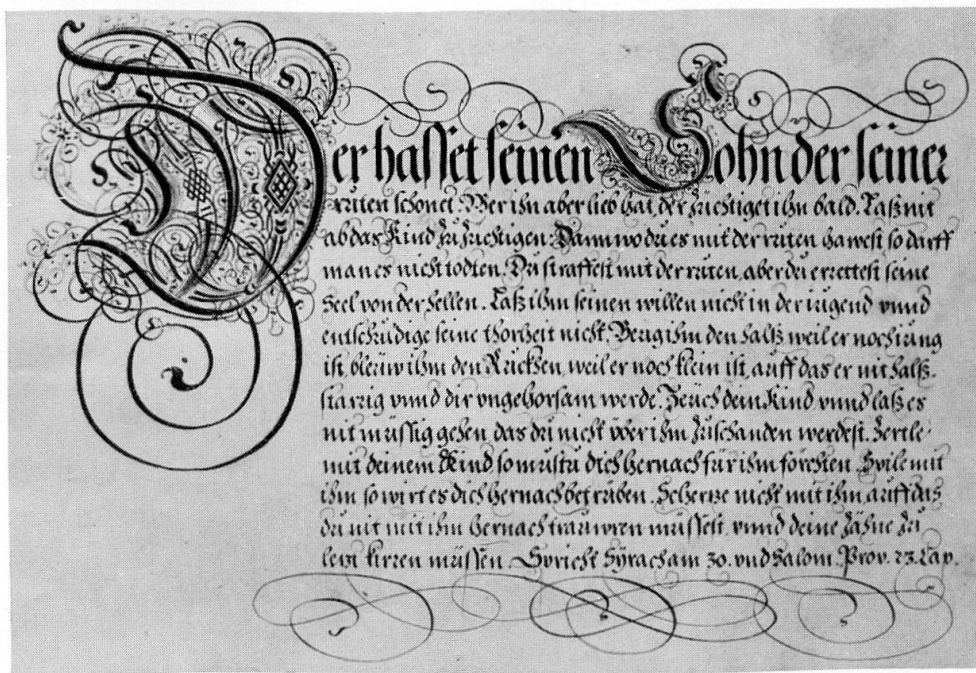 Der hasset seinen Sohn der seiner
růten schonet. Wer ihn aber lieb hat, der züchtiget ihn bald. Laß nit
ab das Kind zu züchtigen. Dann wo du es mit der růten hawest so darff
man es nicht tödten. Du straffest mit der růten, aber du errettest seine
Seel von der hellen. Laß ihm seinen willen nicht in der iugend vnnd
entschuldige seine thorheit nicht. Beug ihm den halß weil er noch iung
ist, bleüw ihm den Rucken, weil er noch klein ist, auff das er nit halß-
starrig vnnd dir vngehorsam werde. Zeuch dein Kind vnnd laß es
nit müssig gehen das du nicht vber ihm zuschanden werdest. Zertle
mit deinem Kind, so mustu dich hernach für ihm förchten. Spile mit
ihm so wirt es dich hernach betrüben. Schertze nicht mit ihm, auff das
du nit mit ihm hernach trauwren müssest, vnnd deine Zähne zu
letzt kirren müssen. Spricht Syrach am 30. vnd Salom. Prov. 23. Cap.